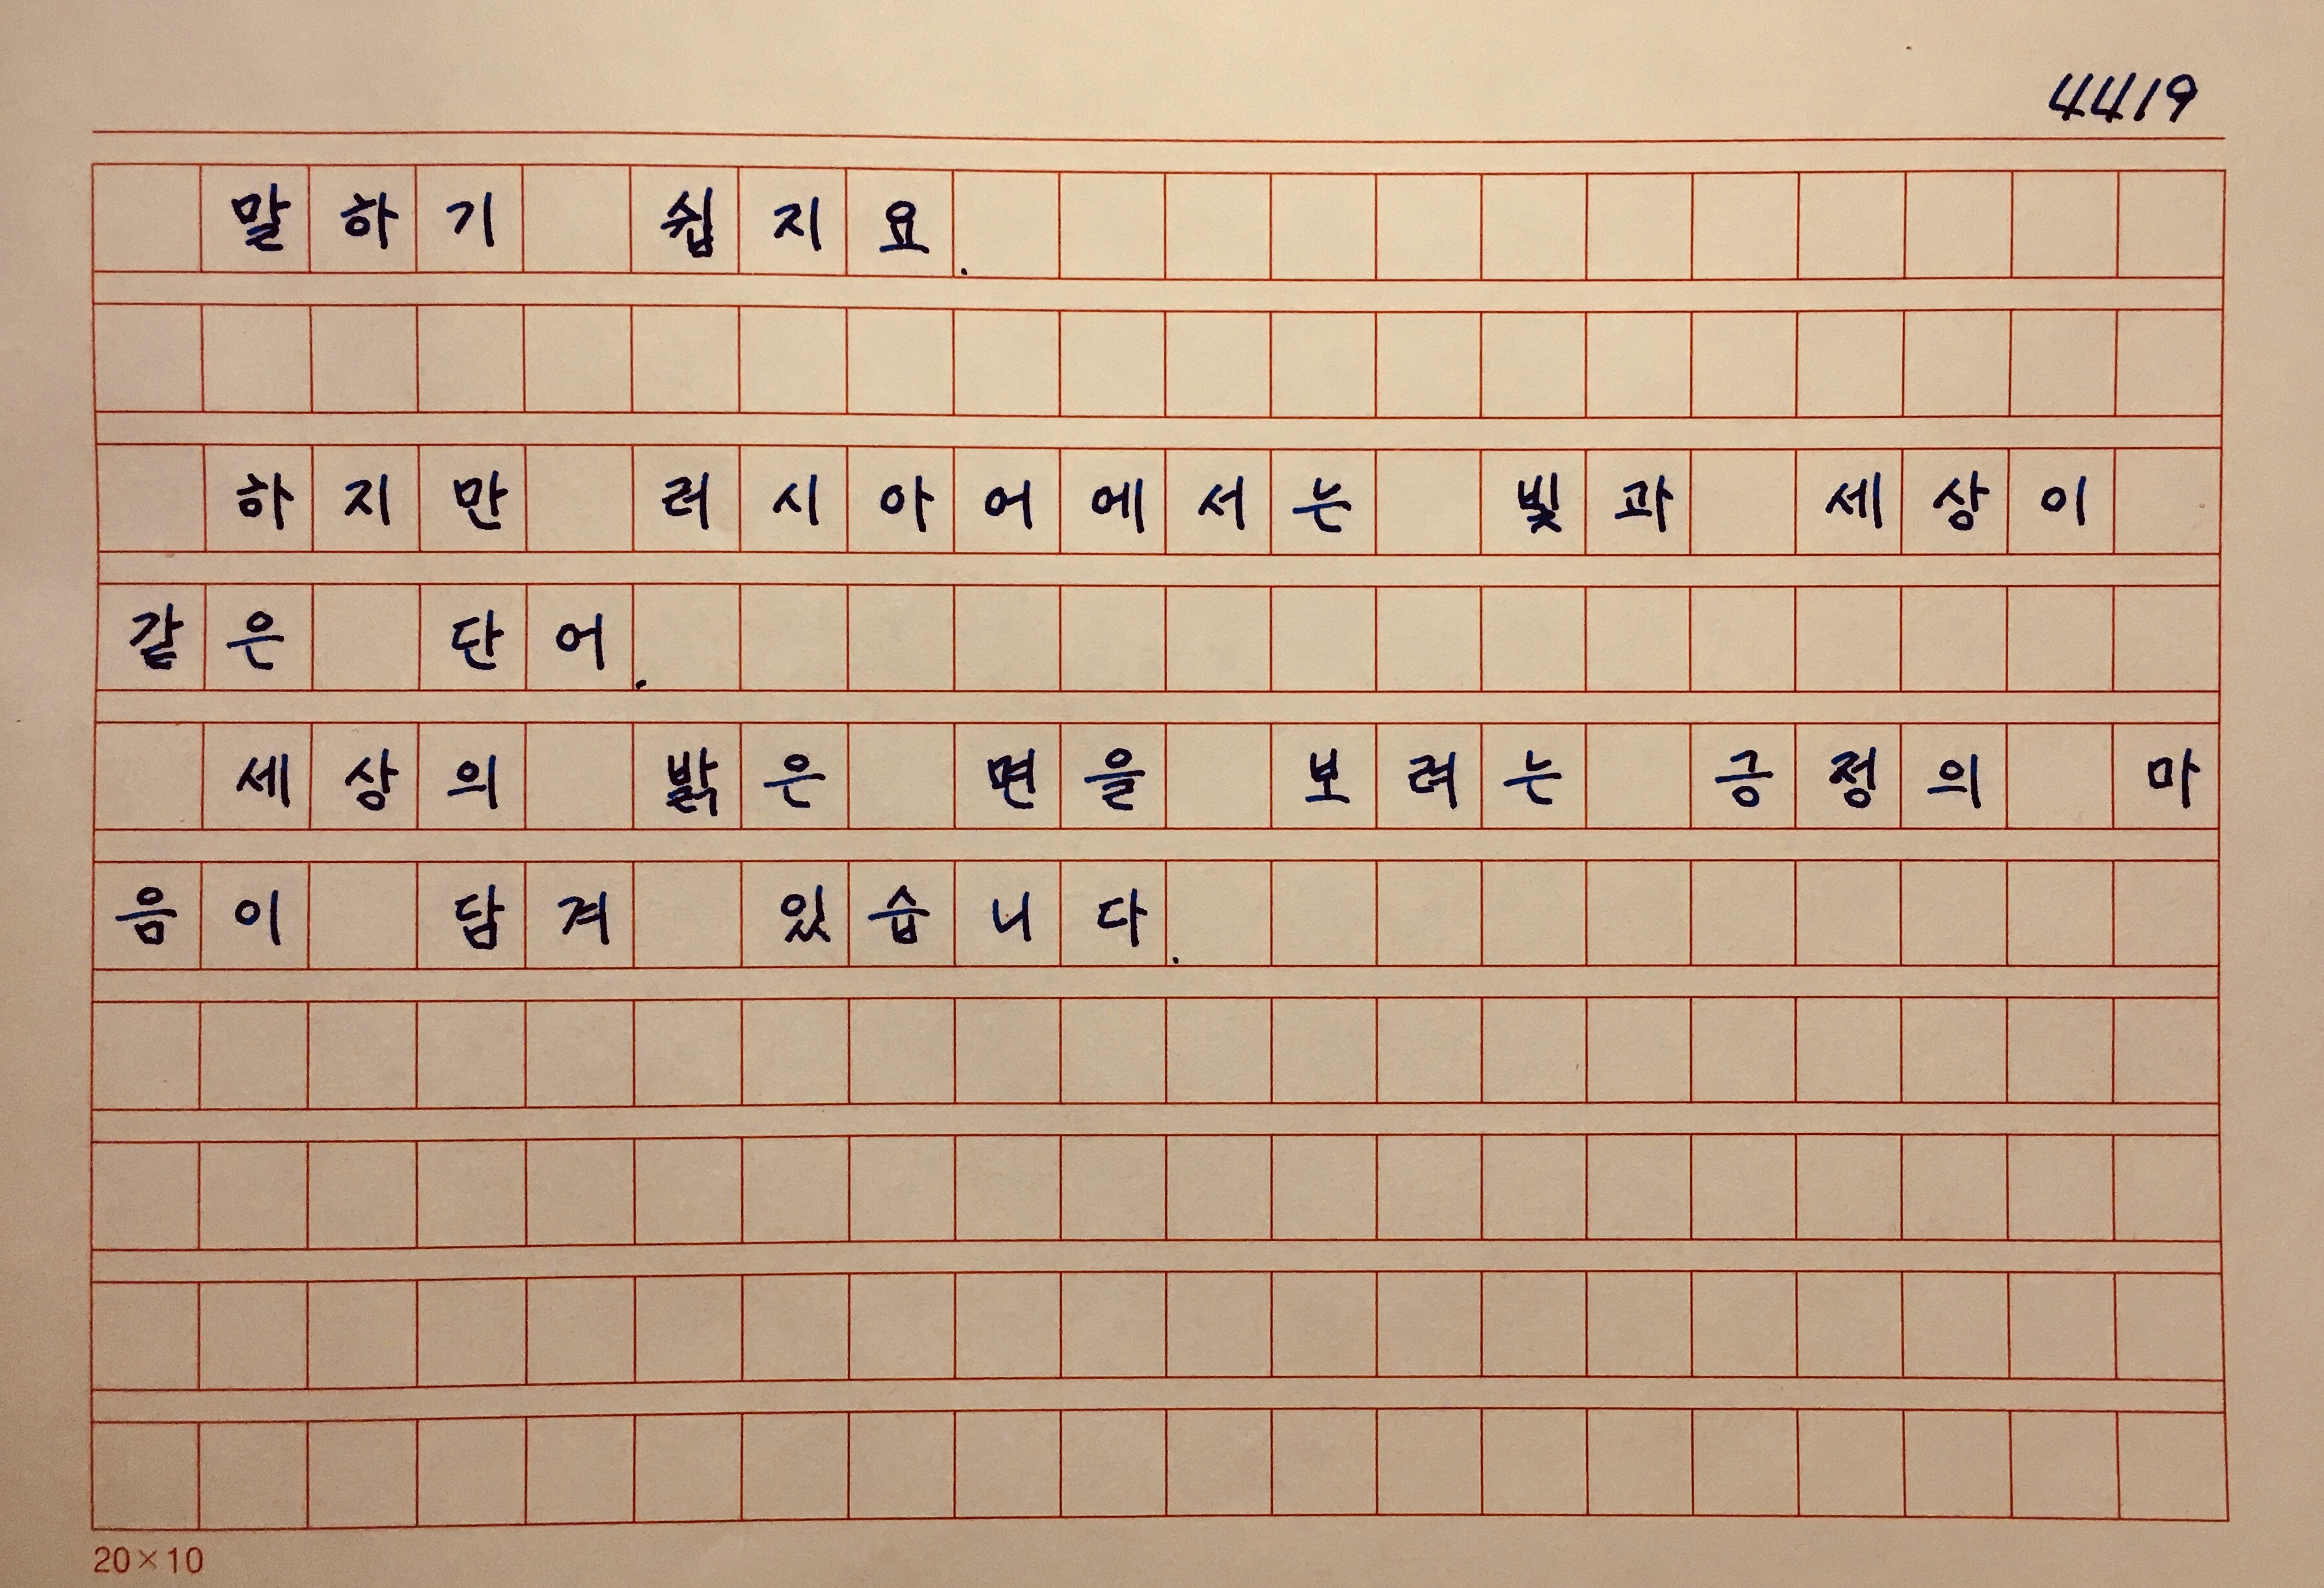 4419
말하기 쉽지요.
하지만 러시아어에서는 빛과 세상이
같은 단어.
세상의 밝은 면을 보려는 긍정의 마
음이 담겨 있습니다.
20×10